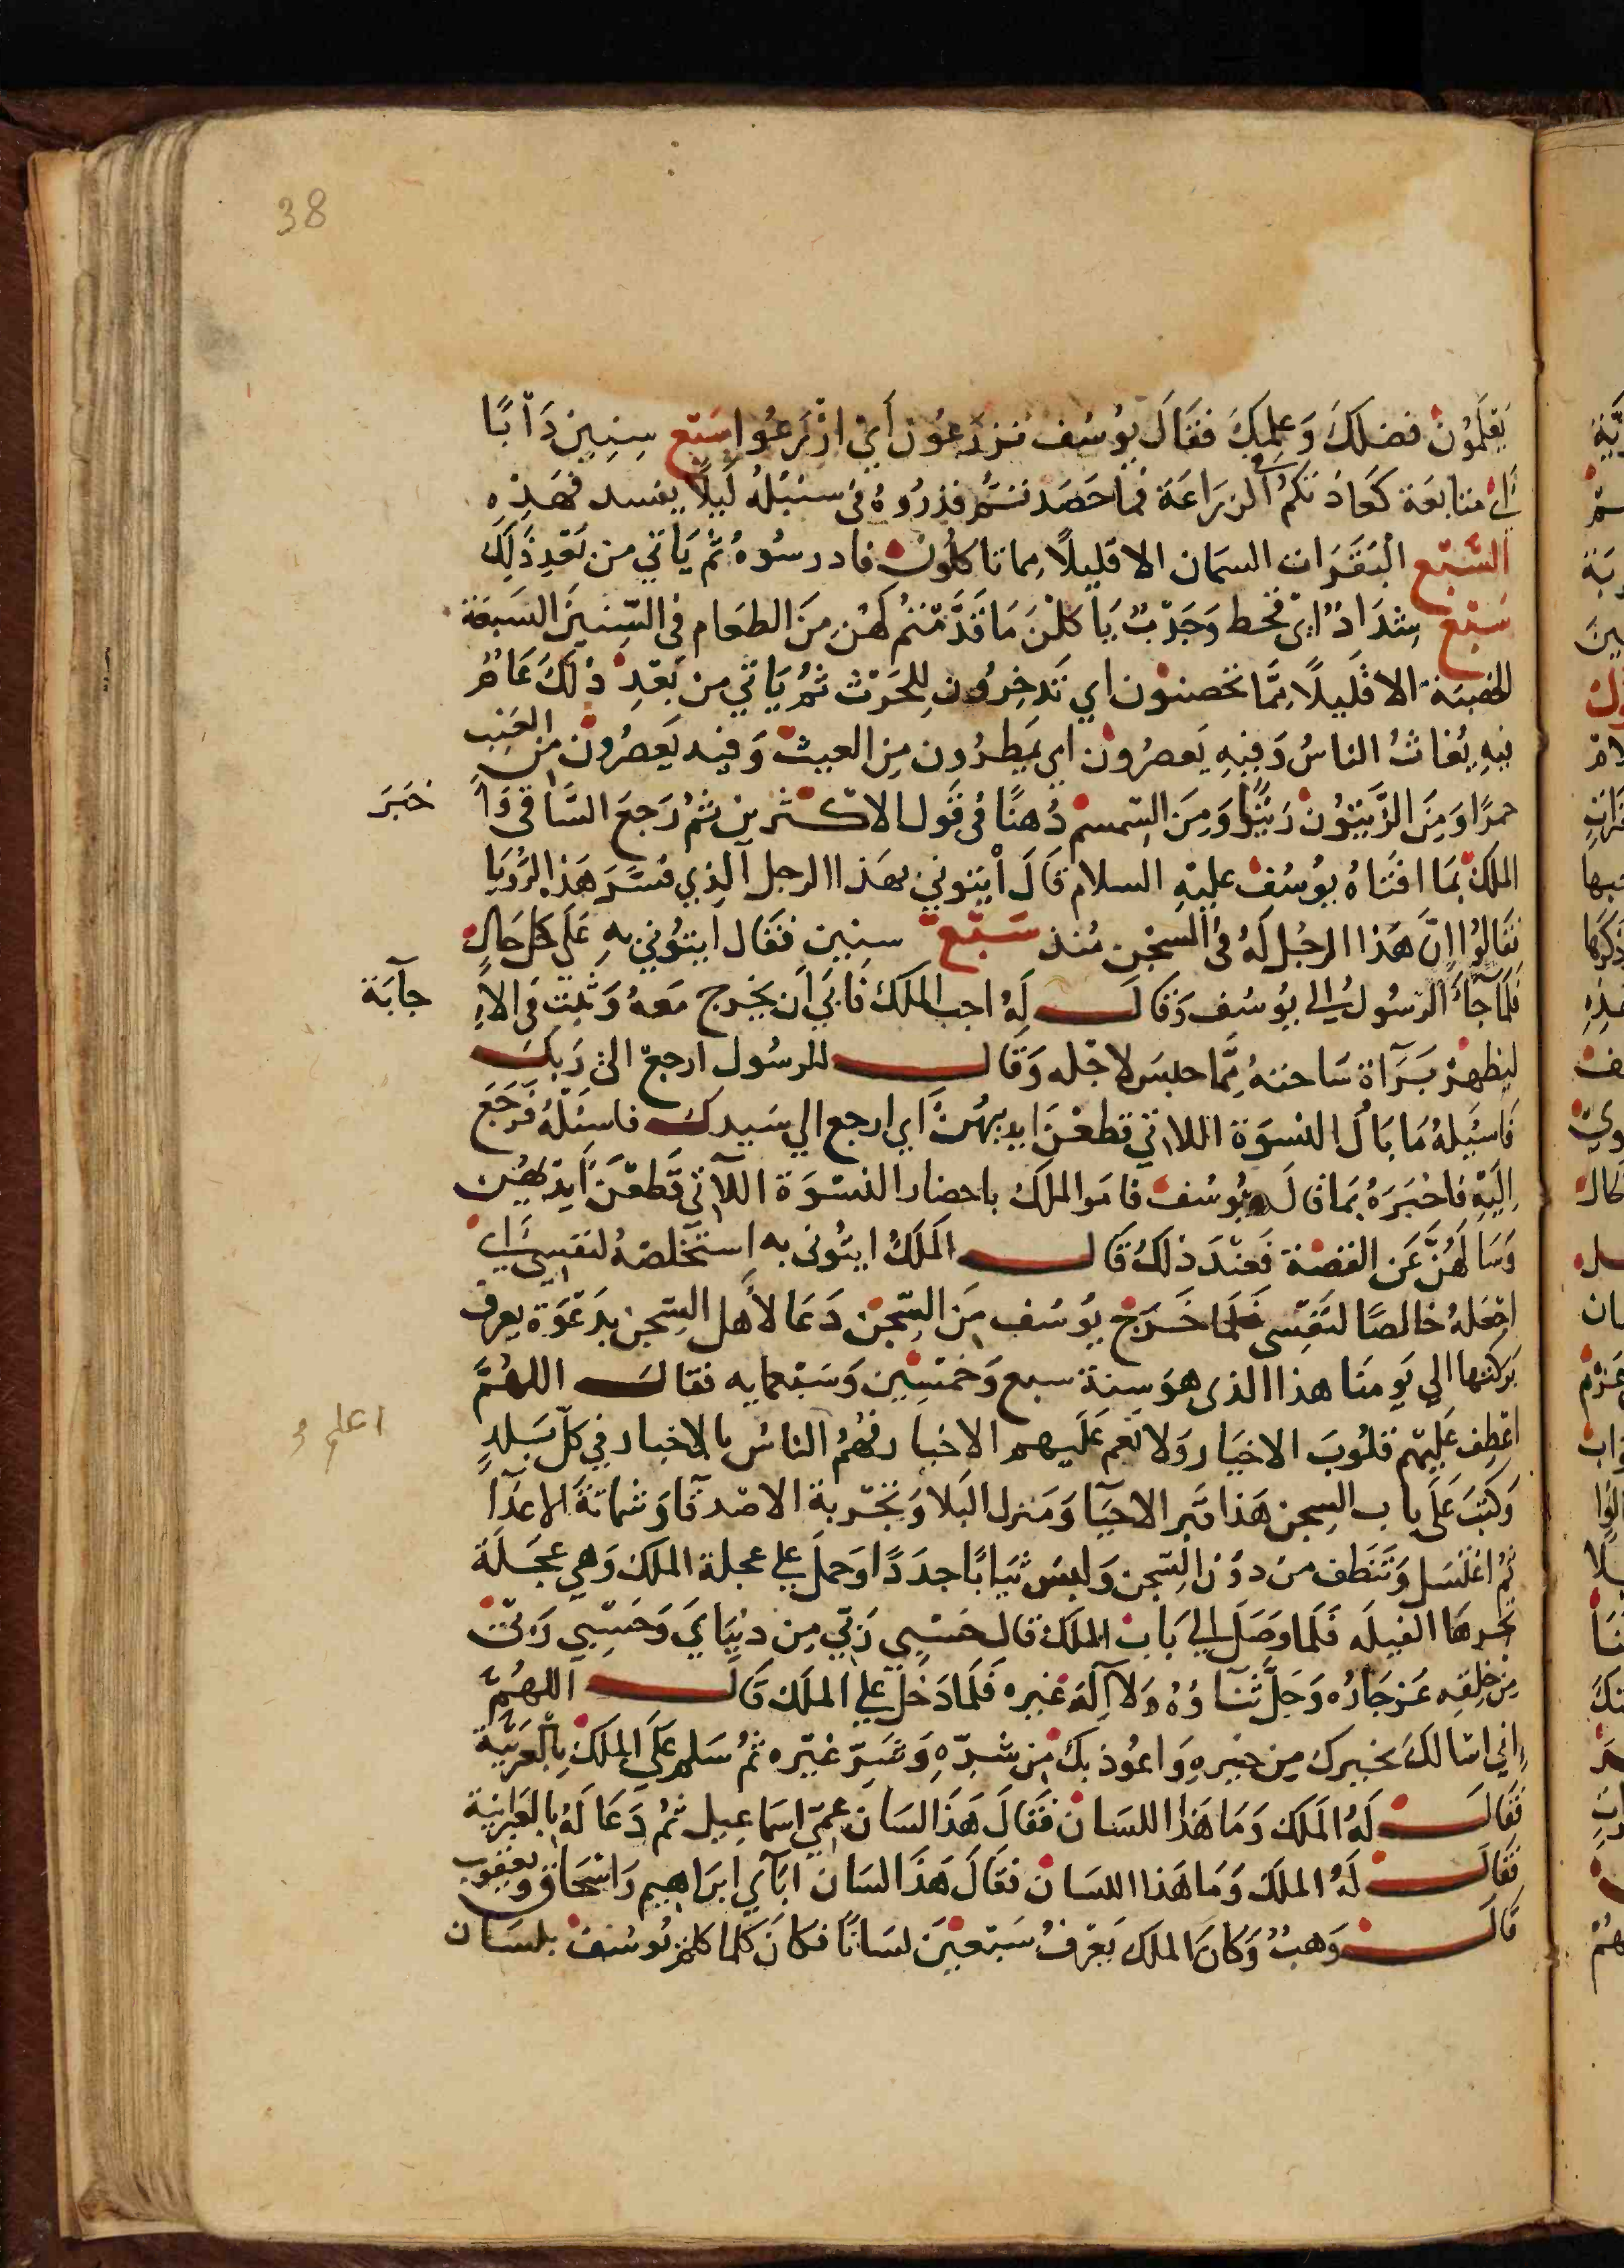 38
يَعْلَمُونَ فضلكَ وَعِلمِكَ فَقَالَ يُوسُف تزرَعُون أَيْ ازْرَعُوا سَبْع سِنِين دَأبًا
اي متابعَة كعَادَتكم في الزرَاعَة فما حَصَدتُم فذرُوهُ في سنبُلهُ لَيلاَ يفسد فهَذِه
السَّبْع البَقَرَات السمَان الا قَلِيلاً مما تاكلُون فادرسُوهُ ثم يَاتي من بَعْدِ ذَلِكَ
سَبْع شِدَادٌ اي قحط وَجَدْبٌ يَاكلْنَ مَا قَدَّمْتُم لَهُن مِنَ الطعَام في السِّنِينَ السَبعَة
الخصبَة الا قَلِيلاً مِمَّا تحصنون اي تَدخِرُون لِلحَرْث ثمُ يَاتي من بَعْدِ ذلكَ عَامٌ
فيهِ يُغاث الناسُ وَفِيهِ يَعصرُون اي يمَطرُون مِن الغيث وَفيه يَعصرُون من العِنِب
خمرًا وَمِنَ الزَّيتُون زَيتًا وَمِنَ السّمسم دُهنًا في قَول الاكثرين ثمُ رَجعَ السَّاقي وَأ خبَرَ
الملكْ بَمَا افتَاهُ يوُسُف عليْهِ السلام قَالَ أيتوني بهَذا الرجل الذِي فسَّرَ هَذ الرُّويَا
فقَالُوا انَّ هَذا الرجُل لَهُ في السِّجْن مُنذ سَبْع سنِين فقَال ايتوُني بهِ عَلَى كل حَالٍ
فلَمّا جَآءَ الرّسُول الي يوُسُف وَقَالَ لَهُ اجب الملك فَابَي أن يخرج مَعهُ وَثبت في الاِ جابَة
ليظهرْ بَرَآة سَاحتهُ مِمَّا حبسَ لاجْله وَقَال للرسُول ارجعْ الي رَبكَ
فَاسئَلهُ مَا بَالُ النسْوَة اللاتي قطعْنَ ايديهُنَّ اي ارجع الي سَيدك فاسئَلهُ فَرَجَع
اِلَيْهِ فاخْبَرَهُ بمَا قالَ يوُسُف فامَر الملكَ باحضار النسْوَة اللآتي قَطعْنَ أيدَيهُن
وَسَالَهُنَّ عَن القصْة فَعنْدَ ذلكَ قَال الملكُ ايتوُني به استَخْلصهُ لنفسِي اي
اجْعَلهُ خالصًا لنَفْسِي فَلمّا خَرَجْ يوُسُف مِنَ السّجْن دَعَا لأَهْل السِّجن بدَعْوَة يعرف
بَركتها الي يَومنَا هذا الذي هوَ سِنة سبع وَخمْسِين وَسَبْعمايه فقال اللهُمَّ
اعْطِف عَلِيْهم قلُوبَ الاخيَار وَلا تَعم عَلَيهم الاخبار فهُمُ الناسُ بالاخبار في كلّ بَلدٍ اعلم و
وَكَتبَ عَلَى باب السِجن هَذا قَبر الاحيَآ وَمَنزل البَلا وَتجْربة الاصْدقآ وَشماتةَ الاعدَآ
ثمُ اغتَسَل وَتَنَظف من دوُن السّجن وَلبسَ ثيَابًا جدَدًا وَحملَ علي عجلة الملك وَهي عجَلَة
تجرهَا الفيلَه فَلمّا وَصَلَ الي بَاب الملك قال حَسْبِي رَبّي مِن دنيَايَ وَحَسْبي رَبّي
مِن خلقِه عَزَ جَارُه وَجَلَّ ثنَآؤُهُ وَلاَ إلهَ غيرُه فَلَمّا دَخَلَ علي الملك قَالَ اللهُمّ
اِني اسَالكَ بخيرك مِن خيرِهِ وَاعوُذ بكَ مِن شرّهِ وَشَرِّ غَيْرِه ثمُ سَلم عَلَي الملكْ بالعَرَبيَّة
فَقالَ لهُ الملك وَمَا هَذا اللسَان فَقَالَ هَذَا لسَان عَمّي اسمَاعِيل ثمُ دَعَا لَهُ بالعَبرَانية
فقالَ لَهُ الملك وَمَا هَذا اللسَان فقَالَ هَذَا لسَان ابَآي ابرَاهِيم وَاسْحَاق وَيعقوب
قَالَ وَهبُ وَكانَ الملك يَعْرفُ سَبْعيْنَ لسَانًا فكَانَ كلما كلمَ يوُسُف بلسَان